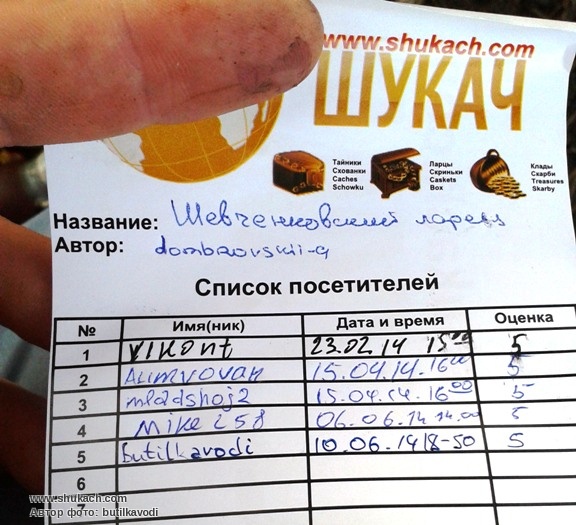 www.shukach.com
ШУКАЧ
Тайники
Схованки
Caches
Schowku
Ларцы
Скриньки
Caskets
Box
Клады
Скарби
Treasures
Skarby
Название: Шевченковский ларец
Автор: dombrovskii-a
Список посетителей
№ Имя(ник) Дата и время Оценка
1 VIKont 23.02.14 15⁰⁰ 5
2 Alimvovan 15.04.14. 16⁰⁰ 5
3 mladshoj2 15.04.14. 16⁰⁰ 5
4 Mike i58 06.06.14 14.00 5
5 butilkavodi 10.06.14 18-50 5
6
7
www.shukach.com
Автор фото: butilkavodi